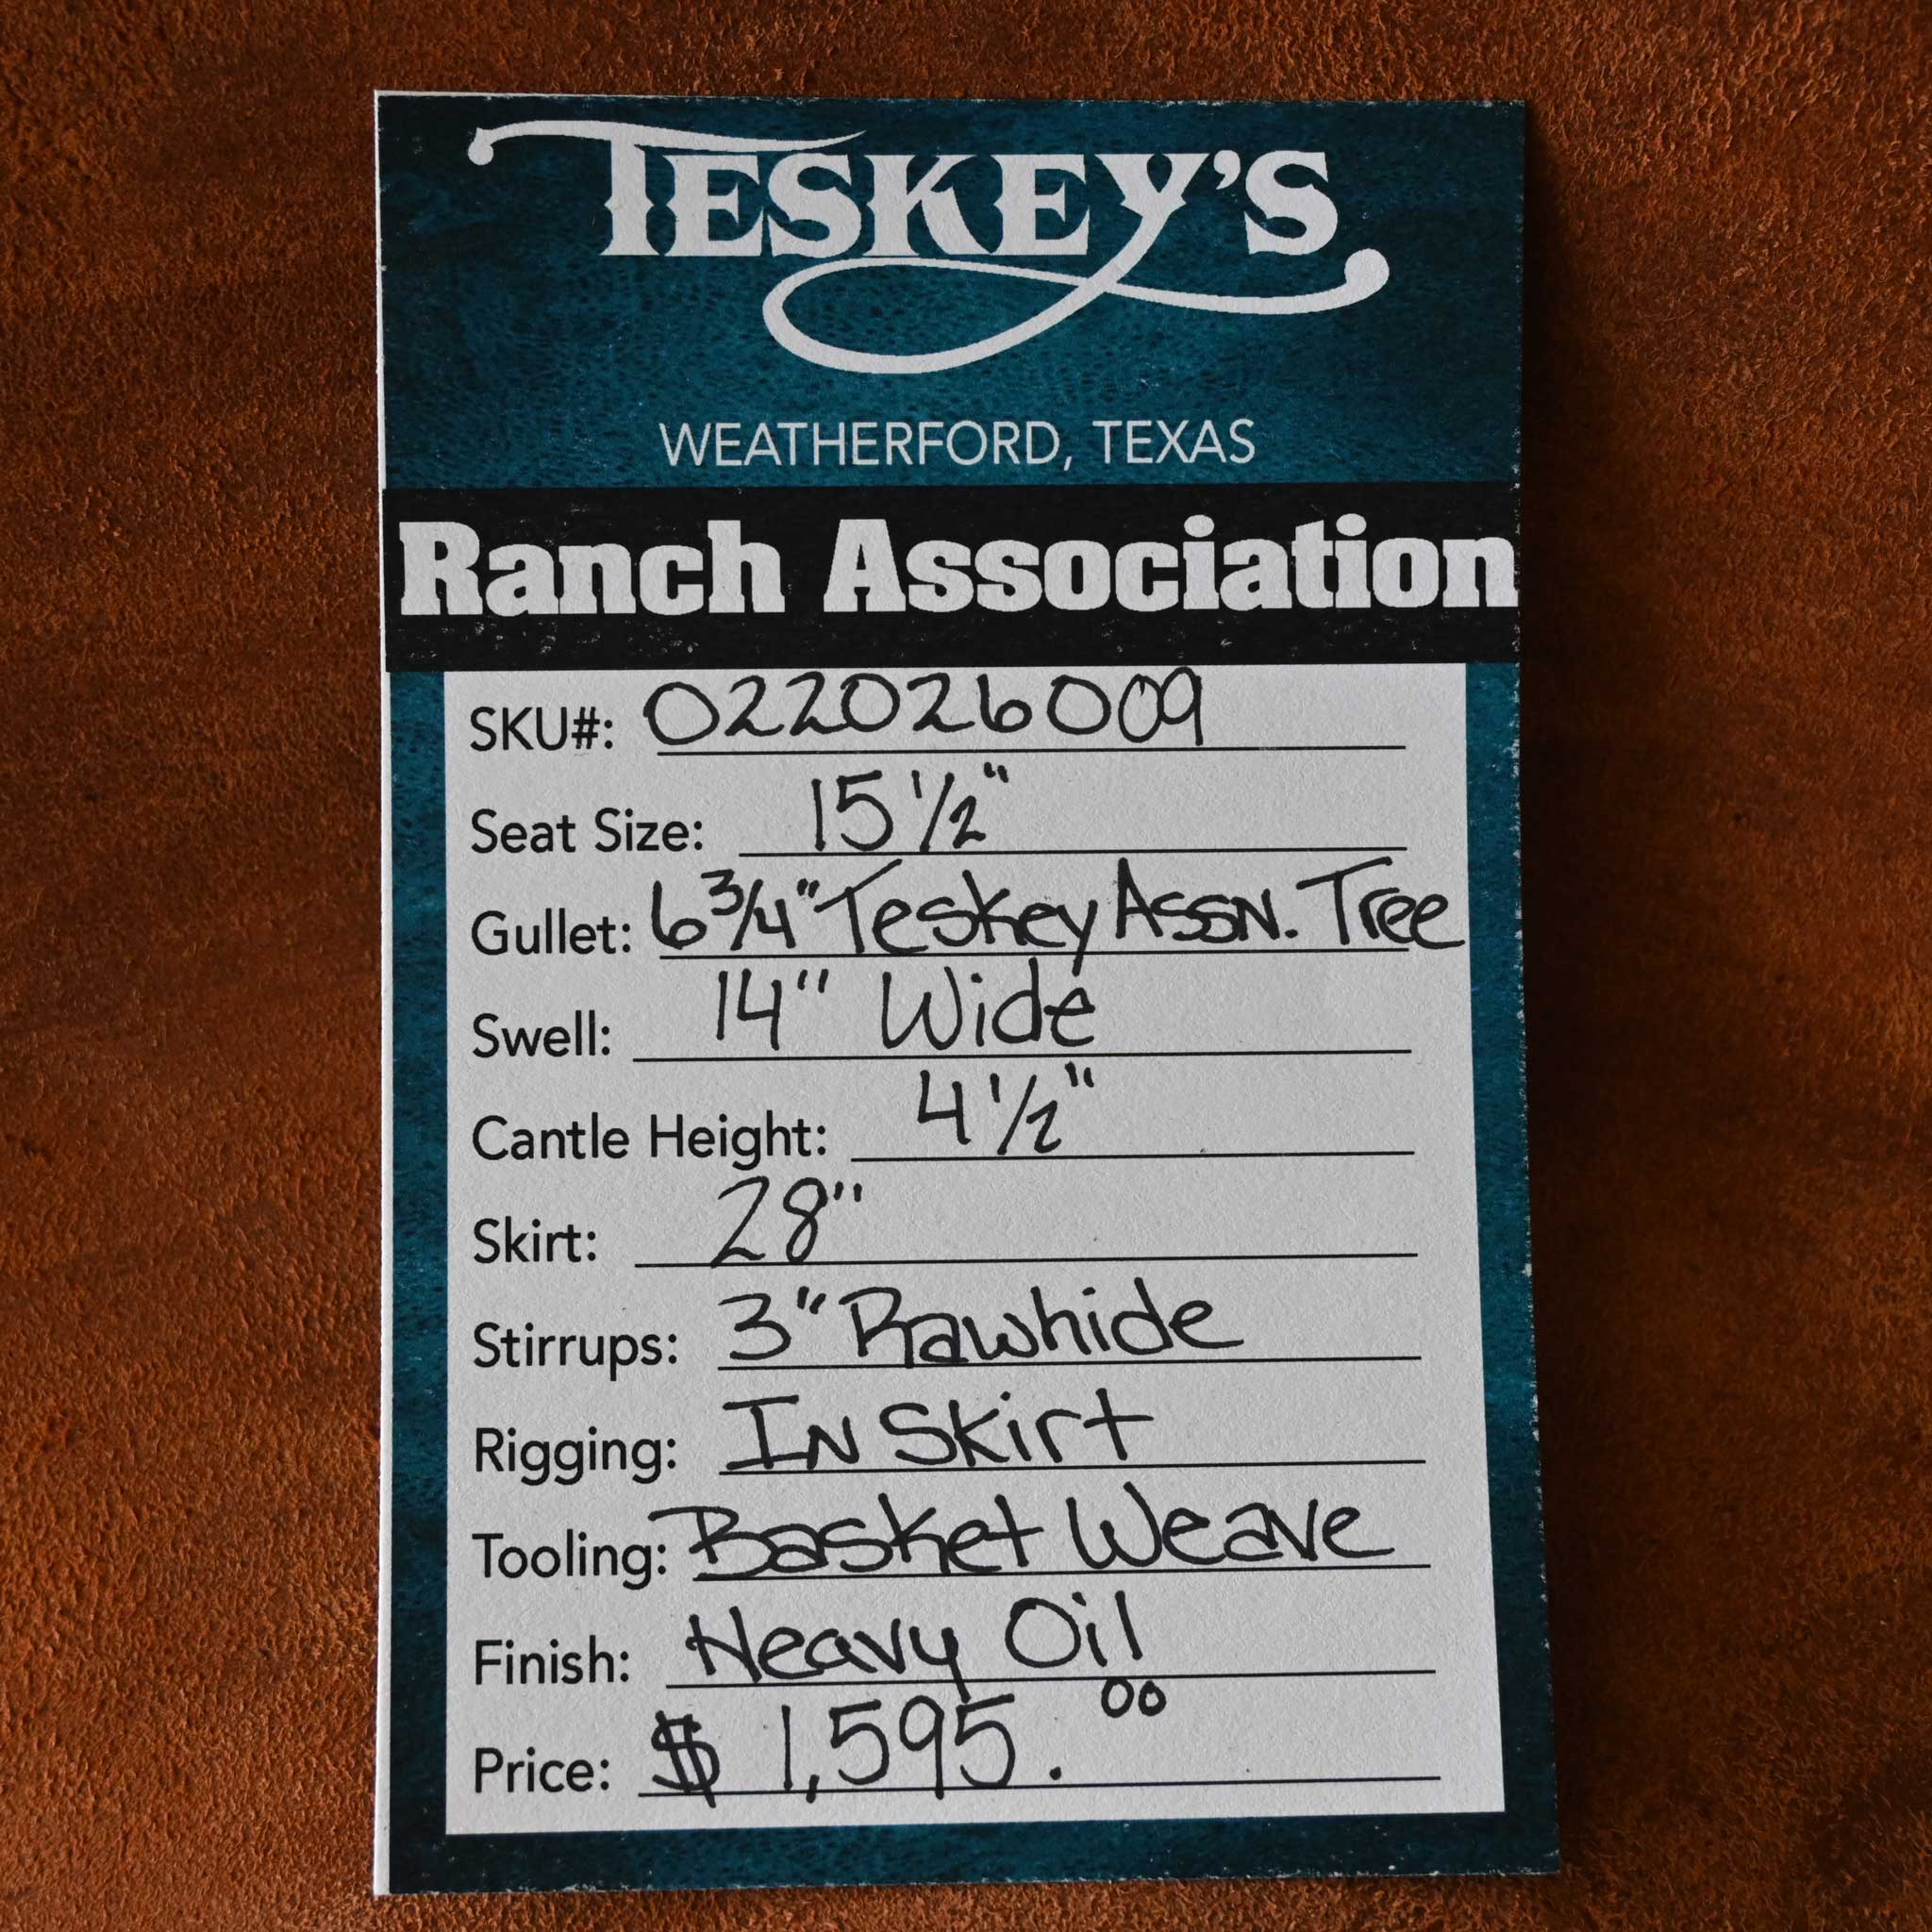 TESKEY'S
WEATHERFORD, TEXAS
Ranch Association
SKU#: 022026009
Seat Size: 15 1/2"
Gullet: 6 3/4" Teskey Assn. Tree
Swell: 14" Wide
Cantle Height: 4 1/2"
Skirt: 28"
Stirrups: 3" Rawhide
Rigging: In Skirt
Tooling: Basket Weave
Finish: Heavy Oil
Price: $ 1,595.00